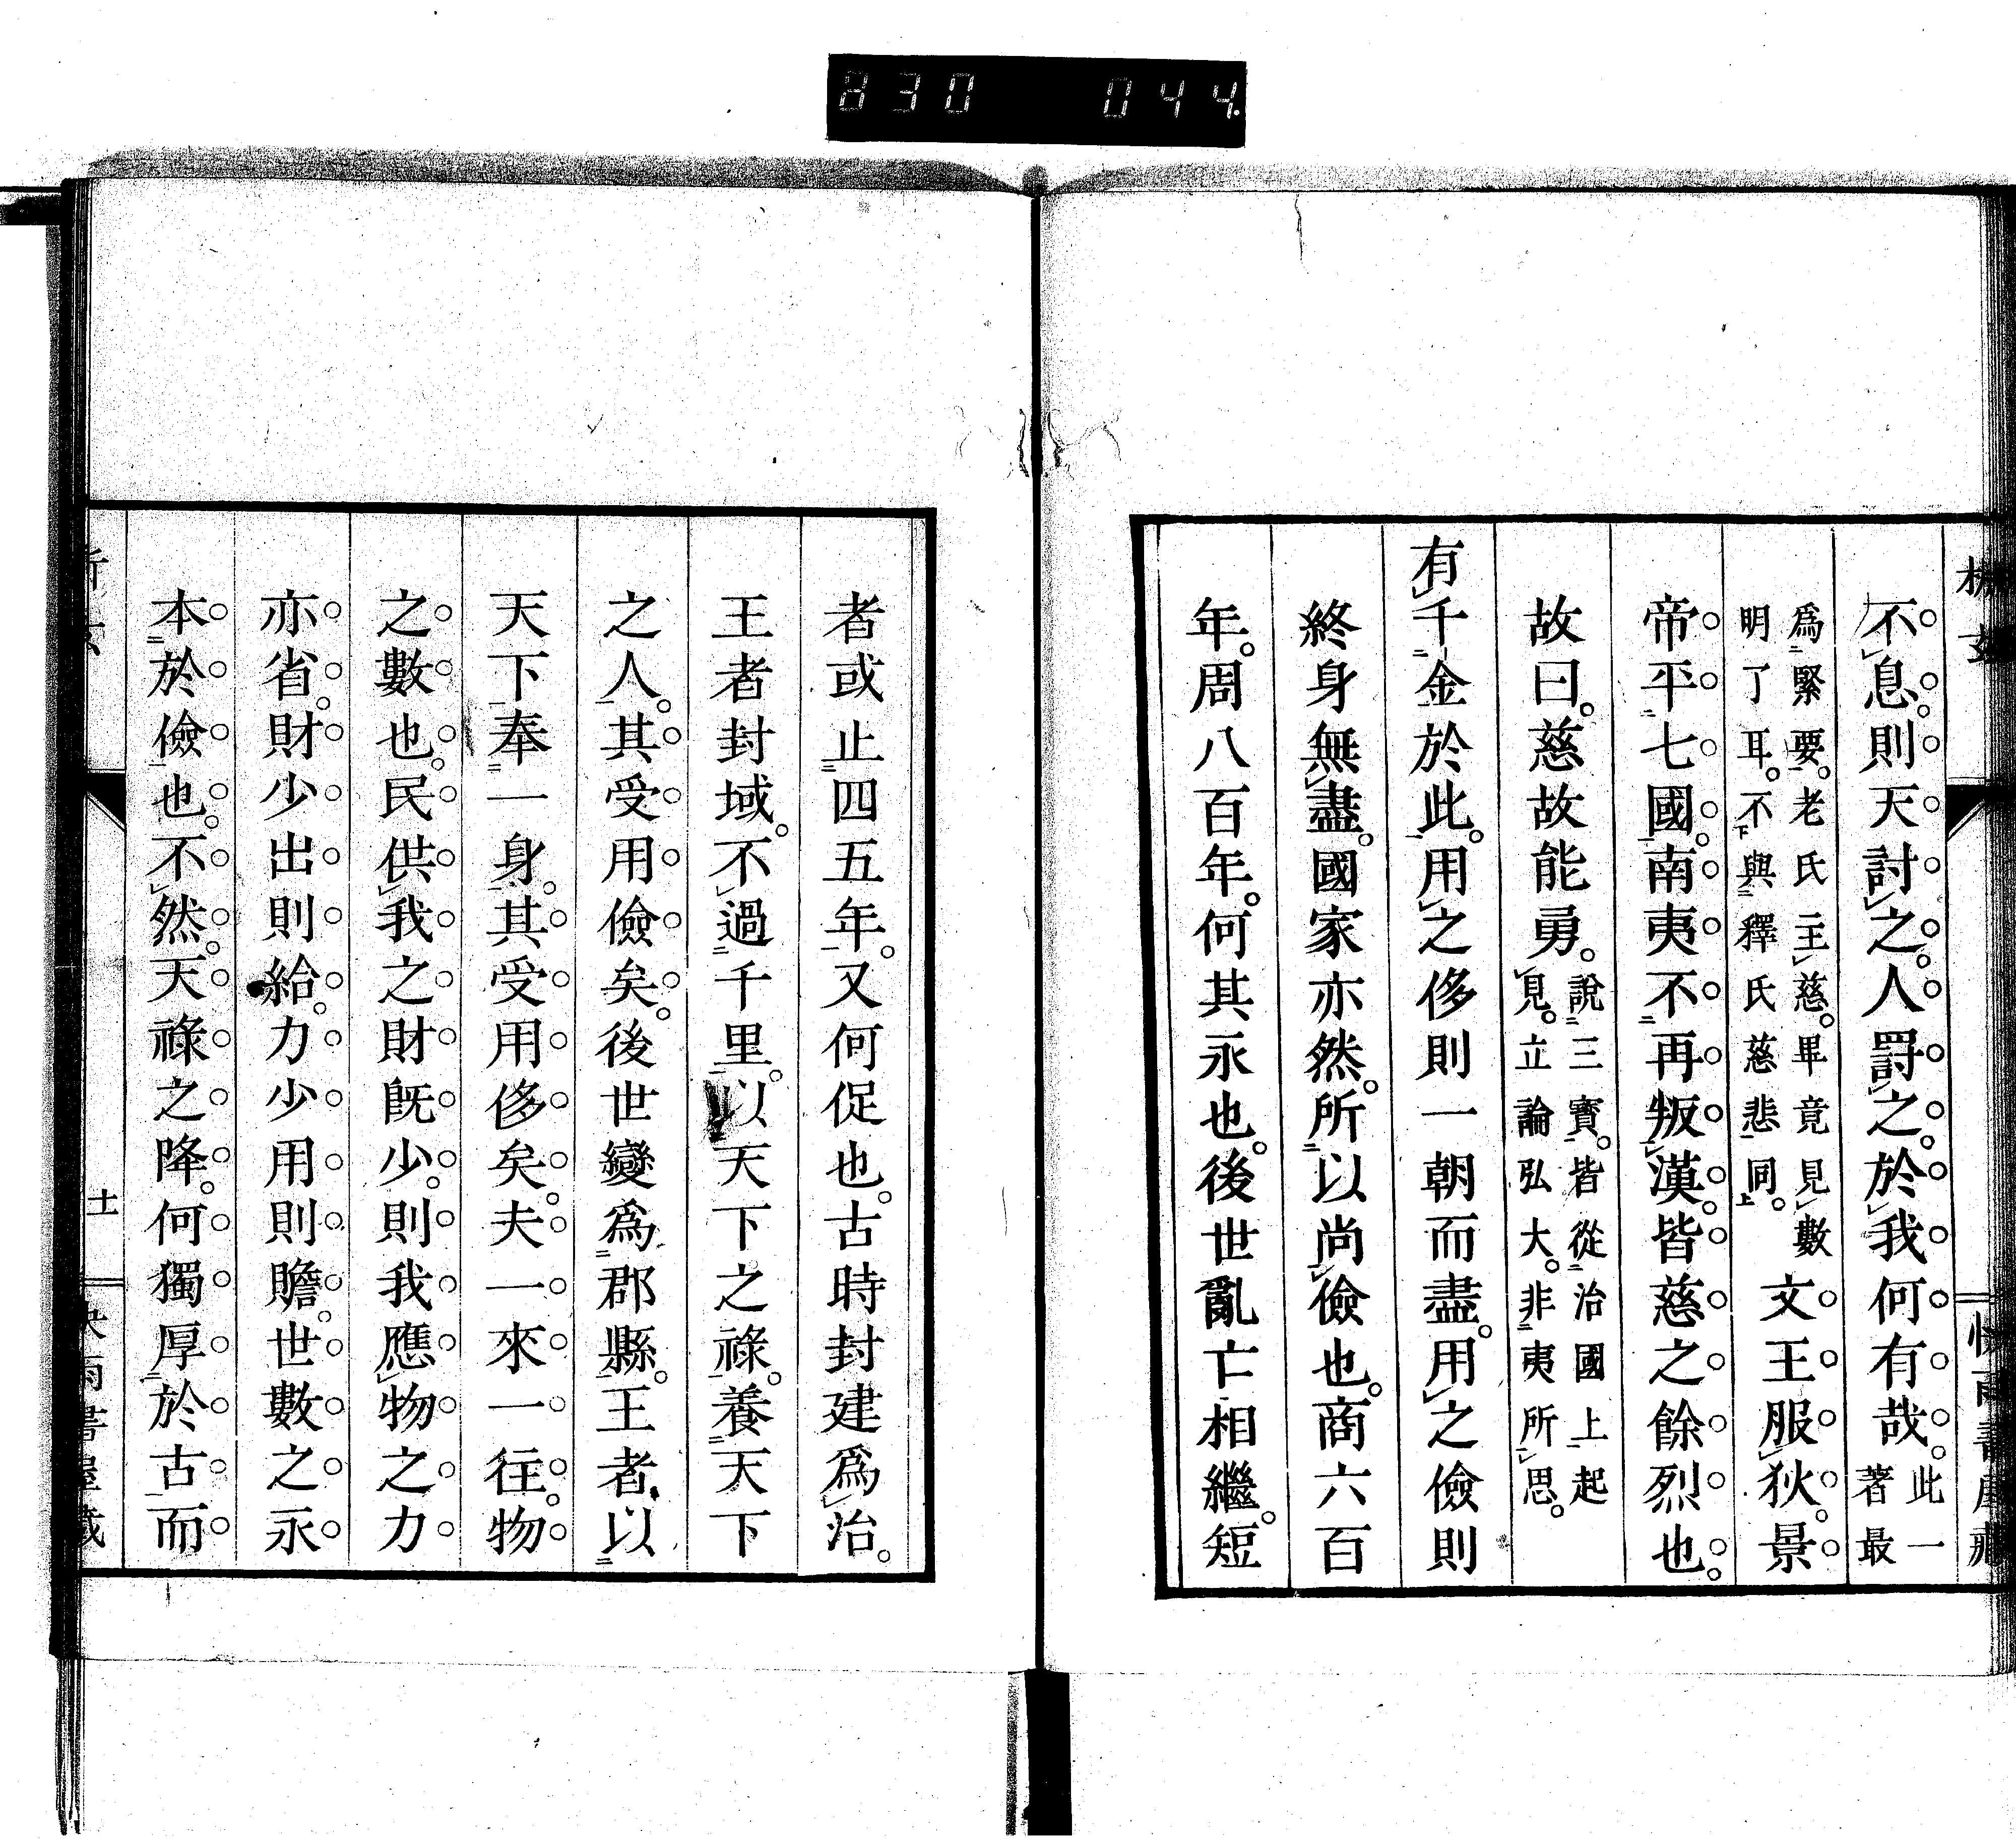 830 044.
不息。則天討之。人罰之。於我何有哉。此一著最
爲緊要。老氏主慈。畢竟見數明了耳。不與釋氏慈悲同。文王服狄。景
帝平七國。南夷不再叛漢。皆慈之餘烈也。
故曰。慈故能勇。說三寶。皆從治國上起見。立論弘大。非夷所思。
有千金於此。用之侈則一朝而盡。用之儉則
終身無盡。國家亦然。所以尚儉也。商六百
年。周八百年。何其永也。後世亂亡相繼。短
者或止四五年。又何促也。古時封建爲治。
王者封域。不過千里。以天下之祿。養天下
之人。其受用儉矣。後世變爲郡縣。王者以
天下奉一身。其受用侈矣。夫一來一往。物
之數也。民供我之財既少。則我應物之力
亦省。財少出則給。力少用則贍。世數之永
本於儉也。不然。天祿之降。何獨厚於古而